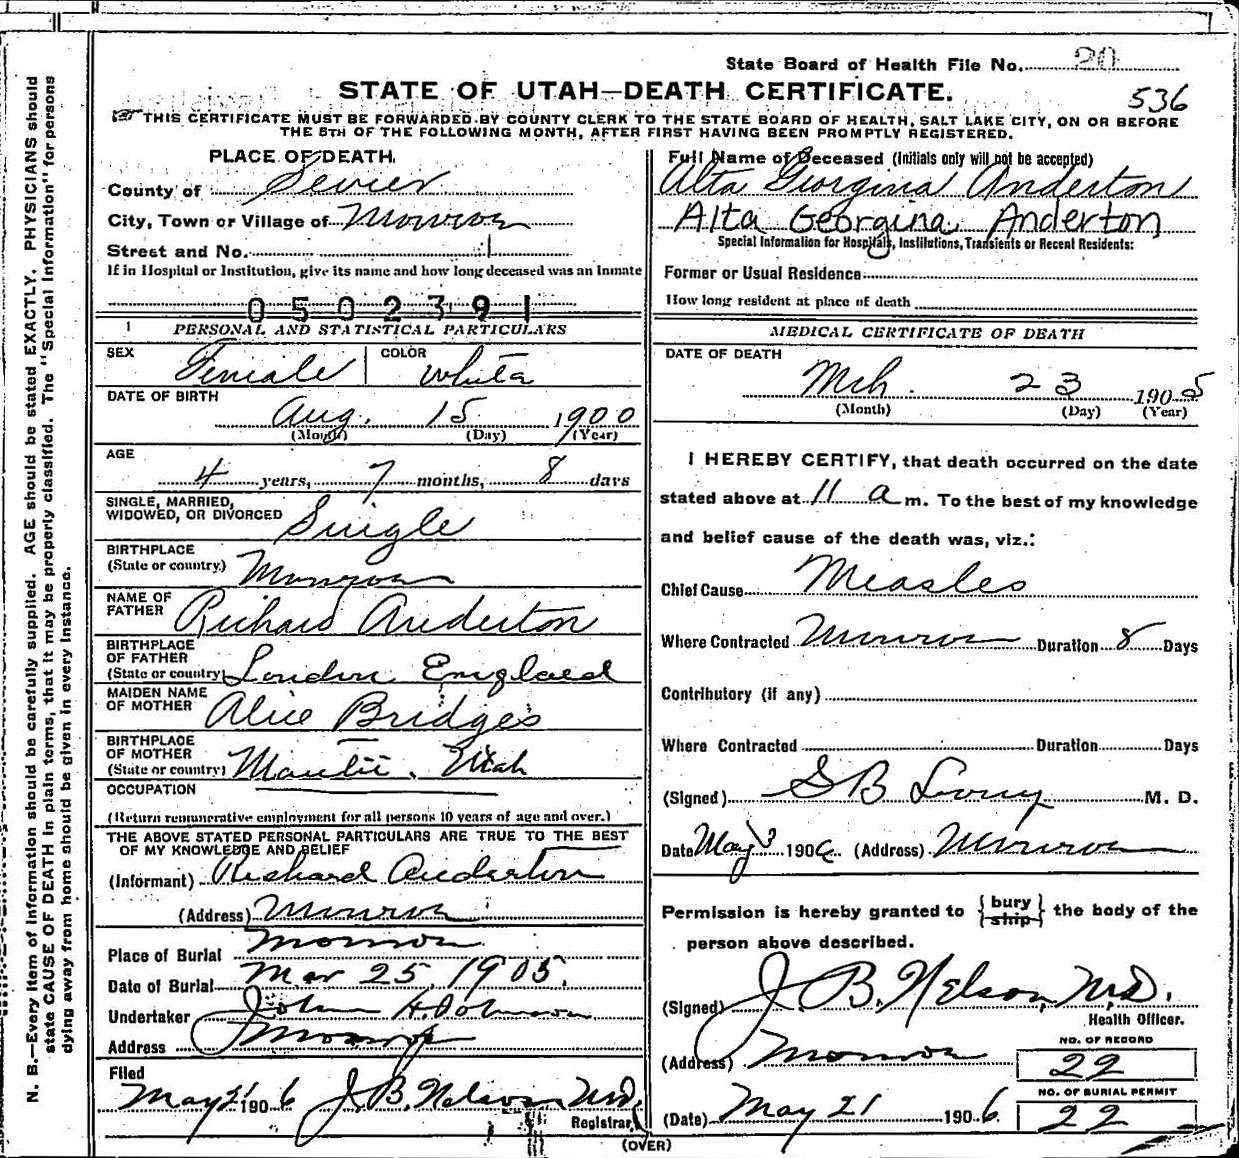 State Board of Health File No. 20
STATE OF UTAH—DEATH CERTIFICATE.
536
THIS CERTIFICATE MUST BE FORWARDED BY COUNTY CLERK TO THE STATE BOARD OF HEALTH, SALT LAKE CITY, ON OR BEFORE
THE 5TH OF THE FOLLOWING MONTH, AFTER FIRST HAVING BEEN PROMPTLY REGISTERED.
N. B.—Every item of information should be carefully supplied. AGE should be stated EXACTLY. PHYSICIANS should
state CAUSE OF DEATH in plain terms, that it may be properly classified. The "Special Information" for persons
dying away from home should be given in every instance.
PLACE OF DEATH.
County of Sevier
City, Town or Village of Monroe
Street and No.
If in Hospital or Institution, give its name and how long deceased was an inmate
0502391
PERSONAL AND STATISTICAL PARTICULARS
SEX Female COLOR White
DATE OF BIRTH
Aug. 15 1900
(Month) (Day) (Year)
AGE
4 years, 7 months, 8 days
SINGLE, MARRIED,
WIDOWED, OR DIVORCED Single
BIRTHPLACE
(State or country.) Monroe
NAME OF
FATHER Richard Anderton
BIRTHPLACE
OF FATHER
(State or country) London England
MAIDEN NAME
OF MOTHER Alice Bridges
BIRTHPLACE
OF MOTHER
(State or country) Manti, Utah
OCCUPATION
(Return remunerative employment for all persons 10 years of age and over.)
THE ABOVE STATED PERSONAL PARTICULARS ARE TRUE TO THE BEST
OF MY KNOWLEDGE AND BELIEF
(Informant) Richard Anderton
(Address) Monroe
Place of Burial Monroe
Date of Burial Mar 25, 1905.
Undertaker John H. Johnson
Address Monroe
Filed
May 21 1906 J. B. Nelson M.D.
Registrar,
Full Name of Deceased (Initials only will not be accepted)
Alta Georgina Anderton
Alta Georgina Anderton
Special Information for Hospitals, Institutions, Transients or Recent Residents:
Former or Usual Residence
How long resident at place of death
MEDICAL CERTIFICATE OF DEATH
DATE OF DEATH
Mch. 23 1905
(Month) (Day) (Year)
I HEREBY CERTIFY, that death occurred on the date
stated above at 11 a m. To the best of my knowledge
and belief cause of the death was, viz.:
Chief Cause Measles
Where Contracted Monroe Duration 8 Days
Contributory (if any)
Where Contracted Duration Days
(Signed) S B M. D.
Date May 3 1906. (Address) Monroe
Permission is hereby granted to {bury ship} the body of the
person above described.
(Signed) J. B. Nelson, M.D.
Health Officer.
(Address) Monroe
NO. OF RECORD
22
NO. OF BURIAL PERMIT
(Date) May 21 1906. 22
(OVER)